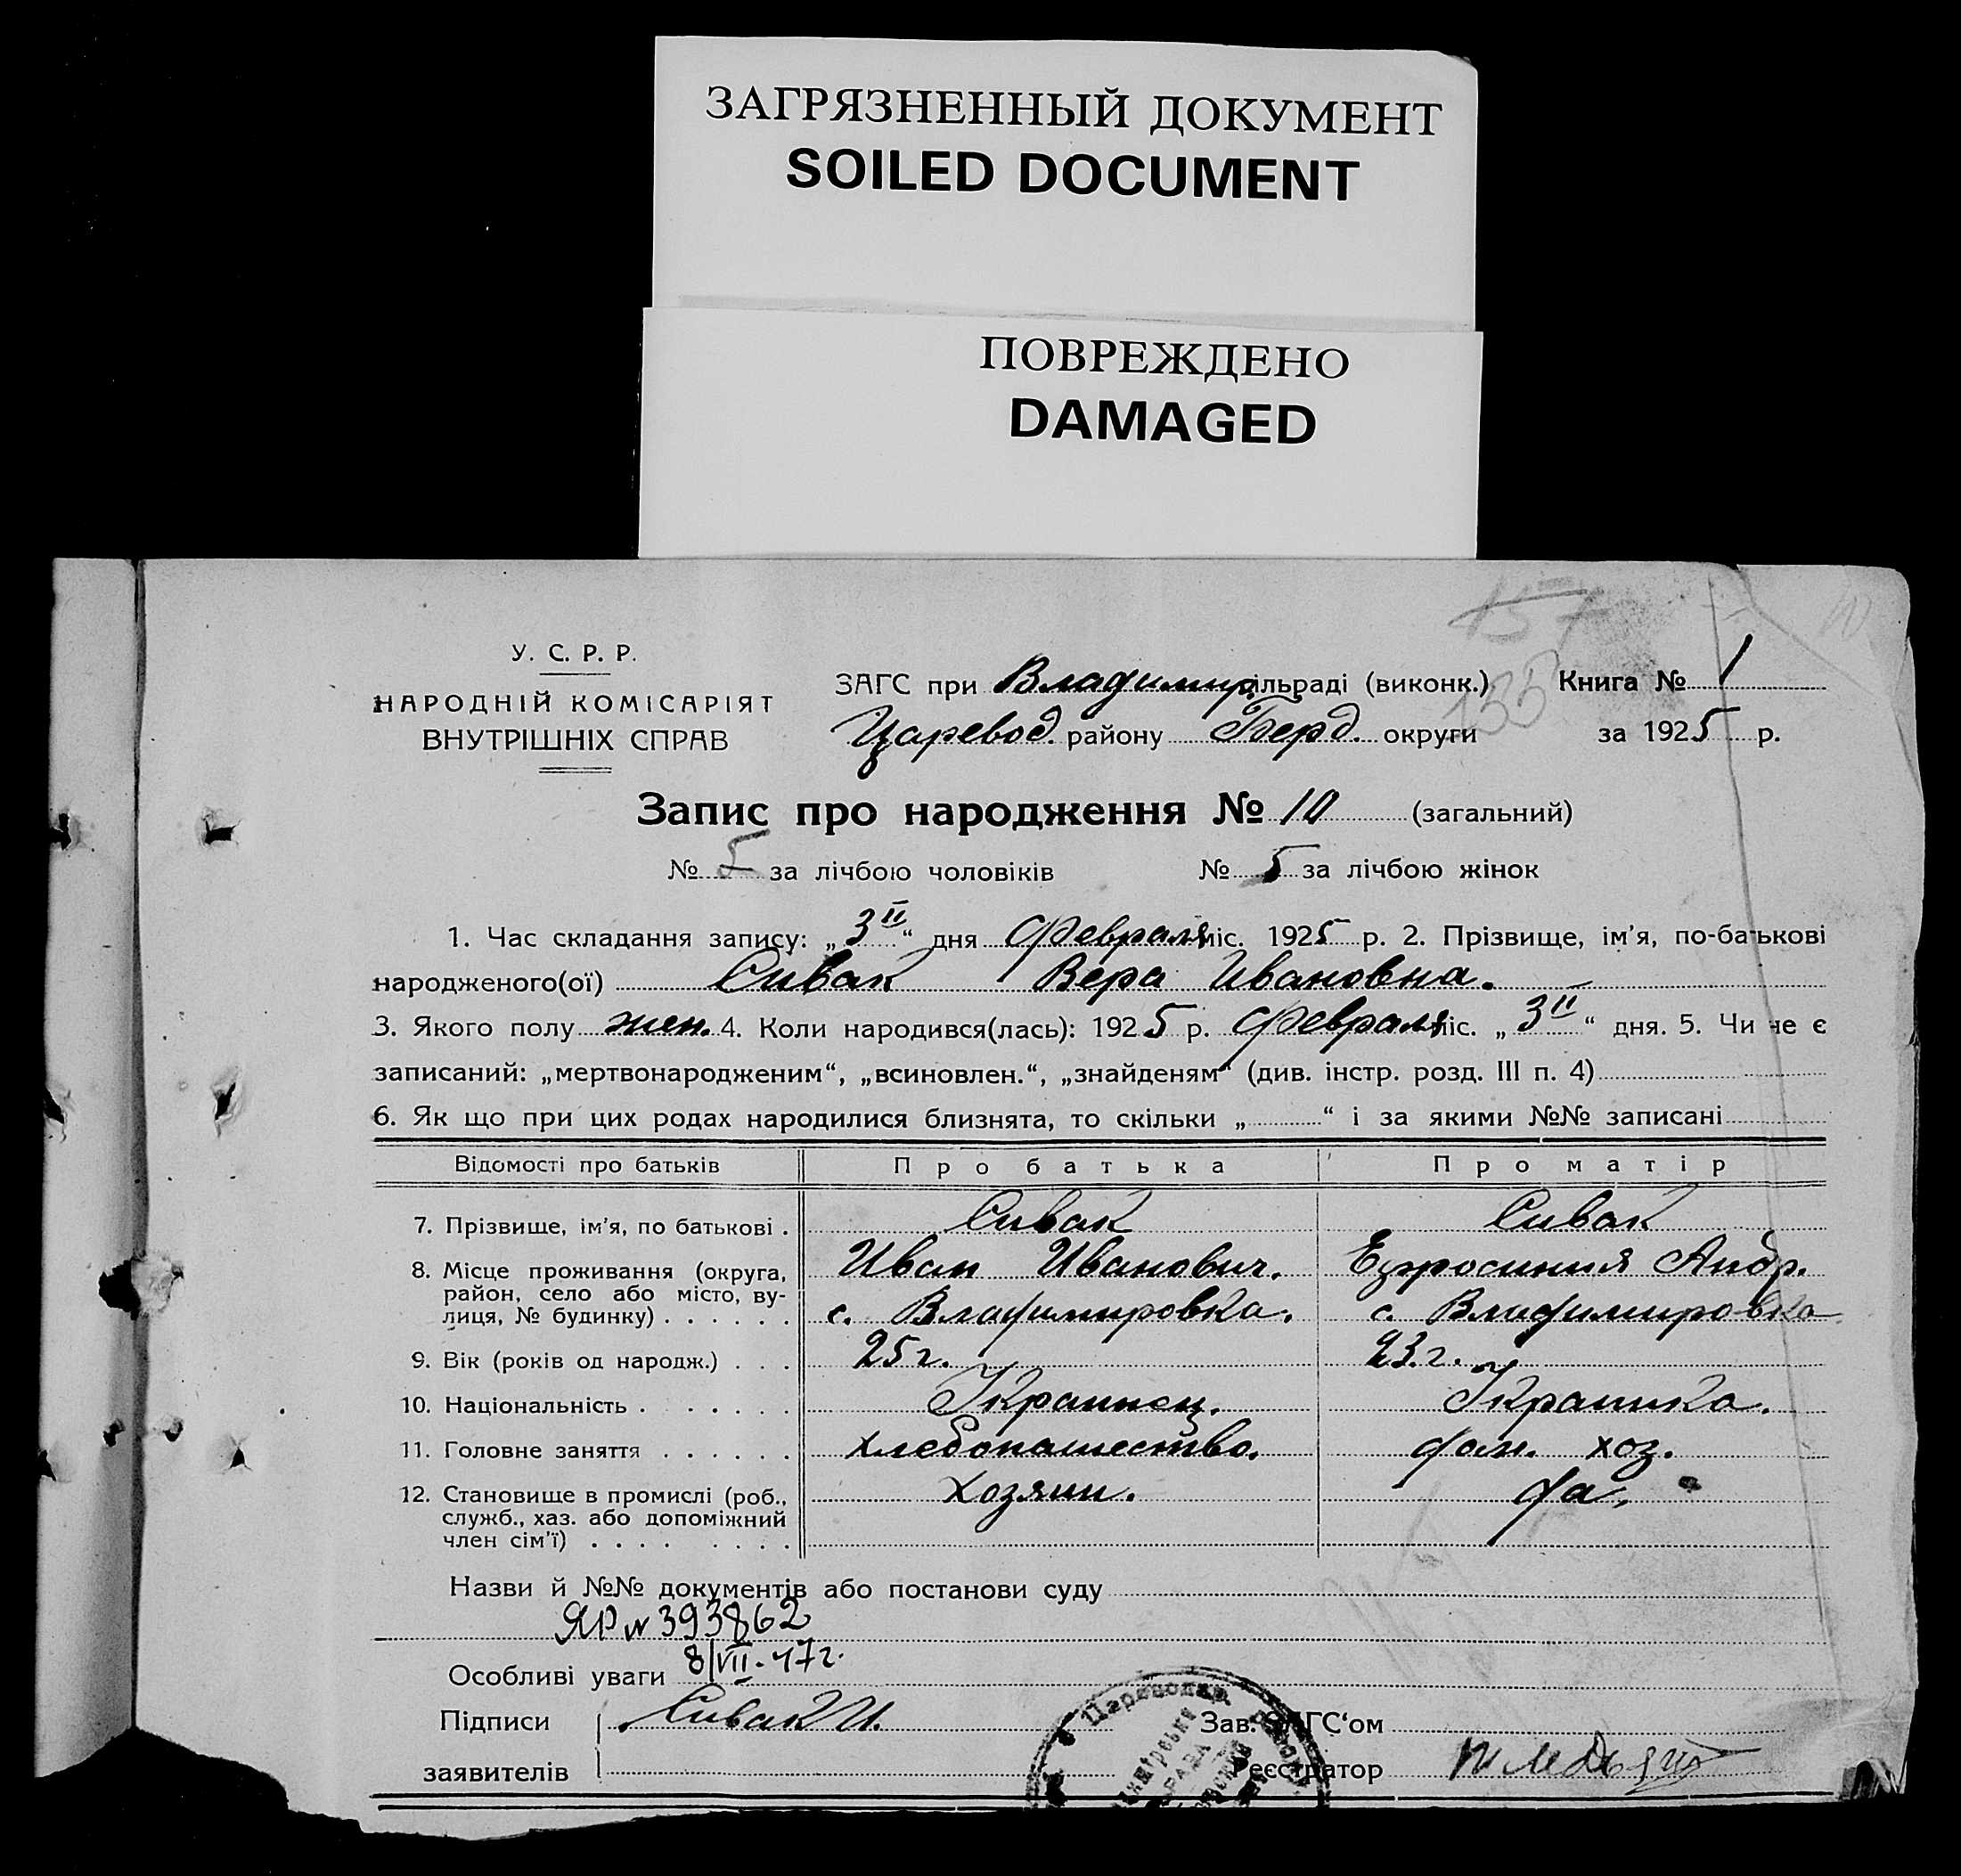 ЗАГРЯЗНЕННЫЙ ДОКУМЕНТ
SOILED DOCUMENT
ПОВРЕЖДЕНО
DAMAGED
157
155
У. С. Р. Р.
НАРОДНІЙ КОМІСАРІЯТ
ВНУТРІШНІХ СПРАВ
ЗАГС при Владимир. сільраді (виконк.) Книга № 1
Царевод. району Берд. округи за 1925 р.
Запис про народження № 10 (загальний)
№ 5 за лічбою чоловіків № 5 за лічбою жінок
1. Час складання запису: „3 II“ дня Февраля міс. 1925 р. 2. Прізвище, ім'я, по-батькові
народженого(ої) Сивак Вера Ивановна.
3. Якого полу жен. 4. Коли народився(лась): 1925 р. Февраля міс. „3 II“ дня. 5. Чи не є
записаний: „мертвонародженим“, „всиновлен.“, „знайденям“ (див. інстр. розд. III п. 4)
6. Як що при цих родах народилися близнята, то скільки „ “ і за якими №№ записані
Відомості про батьків Про батька Про матір
7. Прізвище, ім'я, по батькові . Сивак Сивак
Иван Иванович. Ефросиния Андр.
8. Місце проживання (округа, район, село або місто, вулиця, № будинку) . . . . . . с. Владимировка. с. Владимировка
9. Вік (років од народж.) . . . 25 г. 23. г.
10. Національність . . . . . . Украинец. Украинка.
11. Головне заняття . . . . . . хлебопашество. дом. хоз.
12. Становище в промислі (роб., служб., хаз. або допоміжний член сім'ї) . . . . . . . . хозяин. да.
Назви й №№ документів або постанови суду
ЯР № 393862
Особливі уваги 8/VII-47г.
Підписи Сивак И. Зав. ЗАГС‘ом
заявителів Реєстратор
Царевод